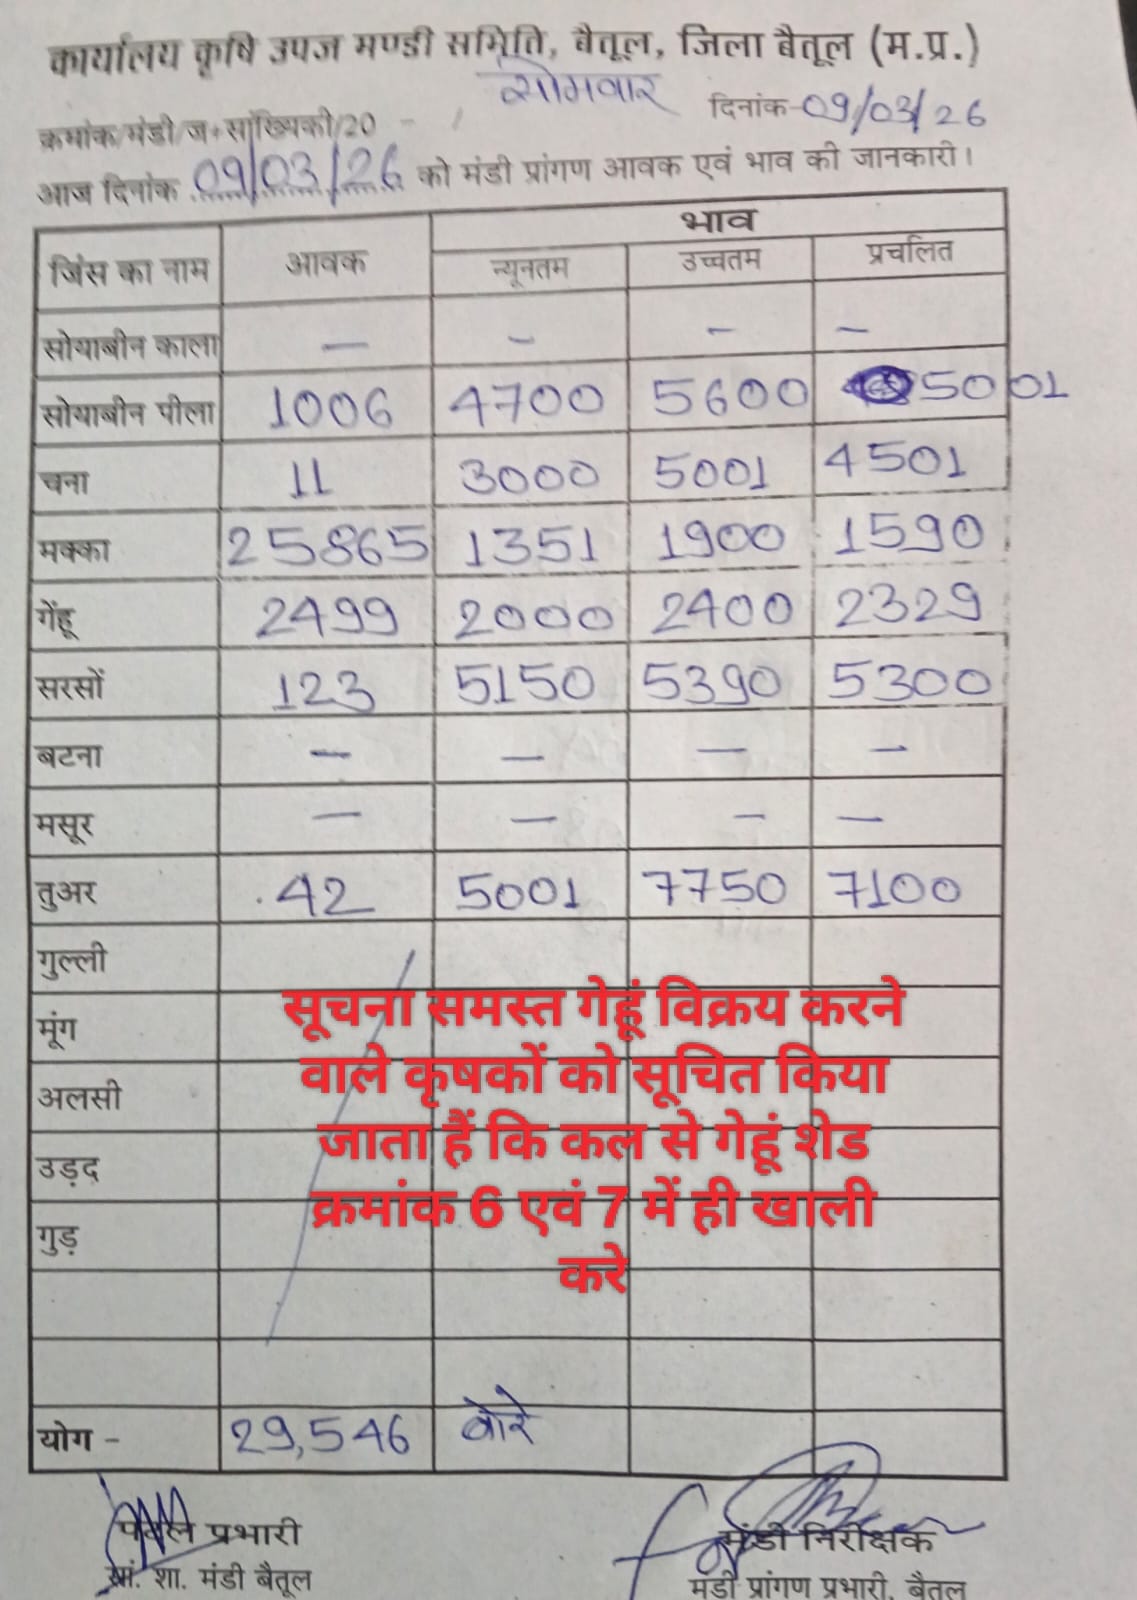 कार्यालय कृषि उपज मण्डी समिति, बैतूल, जिला बैतूल (म.प्र.)
सोमवार
क्रमांक/मंडी/ज+सांख्यिकी/20 -    / दिनांक-09/03/26
आज दिनांक 09/03/26 को मंडी प्रांगण आवक एवं भाव की जानकारी।
जिंस का नाम आवक भाव
न्यूनतम उच्चतम प्रचलित
सोयाबीन काला — — — —
सोयाबीन पीला 1006 4700 5600 5001
चना 11 3000 5001 4501
मक्का 25865 1351 1900 1590
गेंहू 2499 2000 2400 2329
सरसों 123 5150 5390 5300
बटना — — — —
मसूर — — — —
तुअर 42 5001 7750 7100
गुल्ली
मूंग
अलसी
उड़द
गुड़
सूचना समस्त गेहूं विक्रय करने
वाले कृषकों को सूचित किया
जाता हैं कि कल से गेहूं शेड
क्रमांक 6 एवं 7 में ही खाली
करे
योग - 29,546 बोरे
प्रभारी मंडी निरीक्षक
सां. शा. मंडी बैतूल मंडी प्रांगण प्रभारी, बैतूल